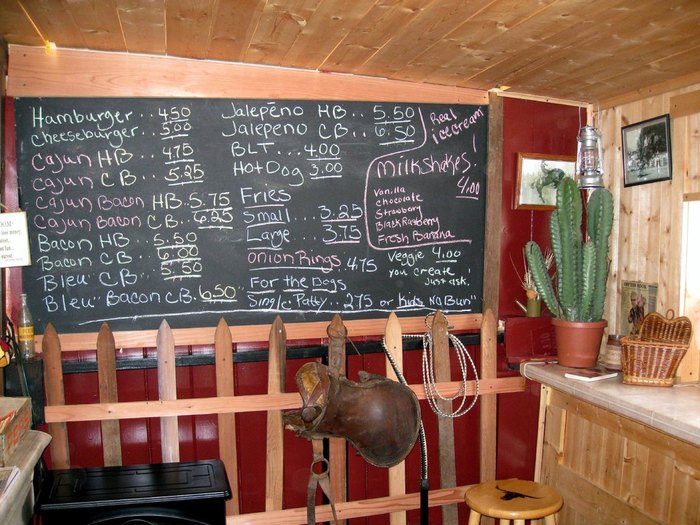 Hamburger... 4.50
cheeseburger... 5.00
Cajun HB ... 4.75
Cajun CB .. 5.25
Cajun Bacon HB. 5.75
Cajun Bacon CB. 6.25
Bacon HB ... 5.50
Bacon CB ... 6.00
Bleu CB ... 5.50
Bleu Bacon CB. 6.50
Jalepeño HB ... 5.50
Jalepeno CB .. 6.50
BLT.... 4.00
Hot Dog 3.00
Fries
Small ... 3.25
Large ... 3.75
onion Rings 4.75
For the Dogs
Single Patty .. 2.75 or Kids "No Bun"
Real icecream!
Milkshakes
4.00
Vanilla
chocolate
Strawberry
Black Raspberry
Fresh Banana
Veggie 4.00
you create
Just ask!